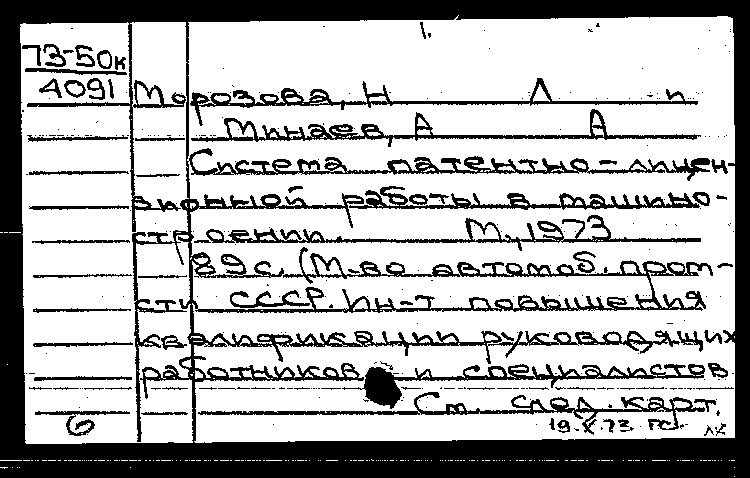 1.
73-50к
4091
Морозова, Н Л и
Минаев, А А
Система патентно-лицен-
зионной работы в машино-
строении. М., 1973.
89 с. (М-во автомоб. пром-
сти СССР. Ин-т повышения
квалификации руководящих
работников и специалистов
См. след. карт.
6
19.X.73.